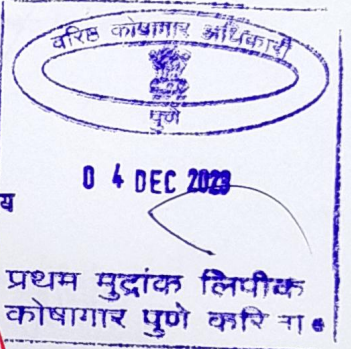 वरिष्ठ कोषागार अधिकारी
पुणे
0 4 DEC 2023
य
प्रथम मुद्रांक लिपीक
कोषागार पुणे करि